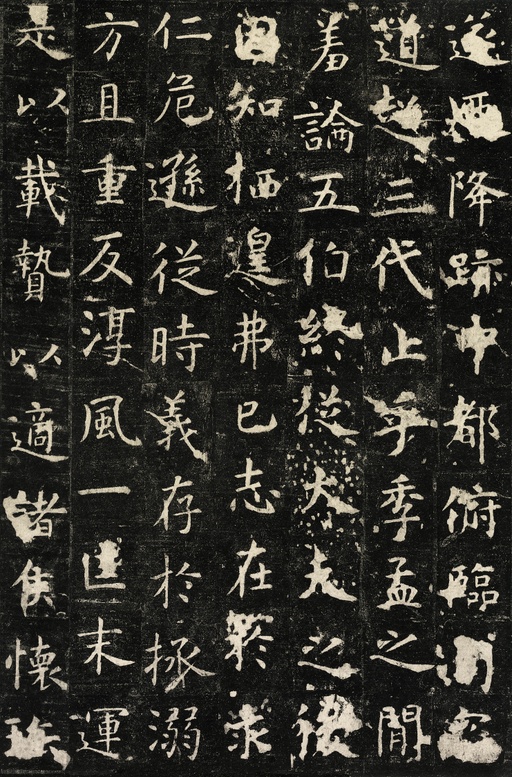 遂迺降跡中都俯臨司寇
道超三代止乎季孟之閒
羞論五伯終從大夫之後
固知栖遑弗已志在於求
仁危遜從時義存於拯溺
方且重反淳風一匡末運
是以載贄以適諸侯懷